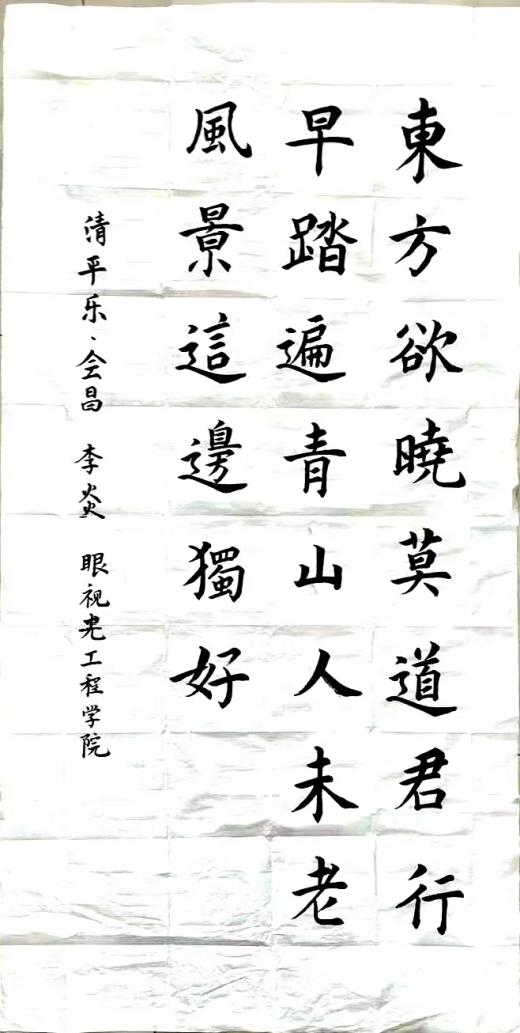 東方欲曉莫道君行
早踏遍青山人未老
風景這邊獨好
清平乐·会昌 李炎 眼视光工程学院